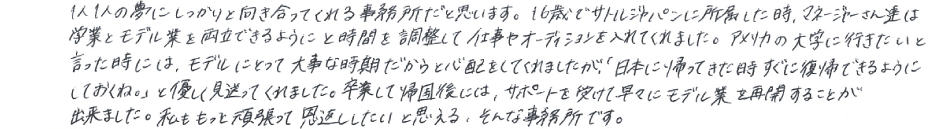 1人1人の夢にしっかりと向き合ってくれる事務所だと思います。16歳でサトルジャパンに所属した時、マネージャーさん達は
学業とモデル業を両立できるようにと時間を調整して仕事やオーディションを入れてくれました。アメリカの大学に行きたいと
言った時には、モデルにとって大事な時期だからと心配をしてくれましたが、「日本に帰ってきた時すぐに復帰できるように
しておくね。」と優しく見送ってくれました。卒業して帰国後には、サポートを受けて早々にモデル業を再開することが
出来ました。私ももっと頑張って恩返ししたいと思える、そんな事務所です。